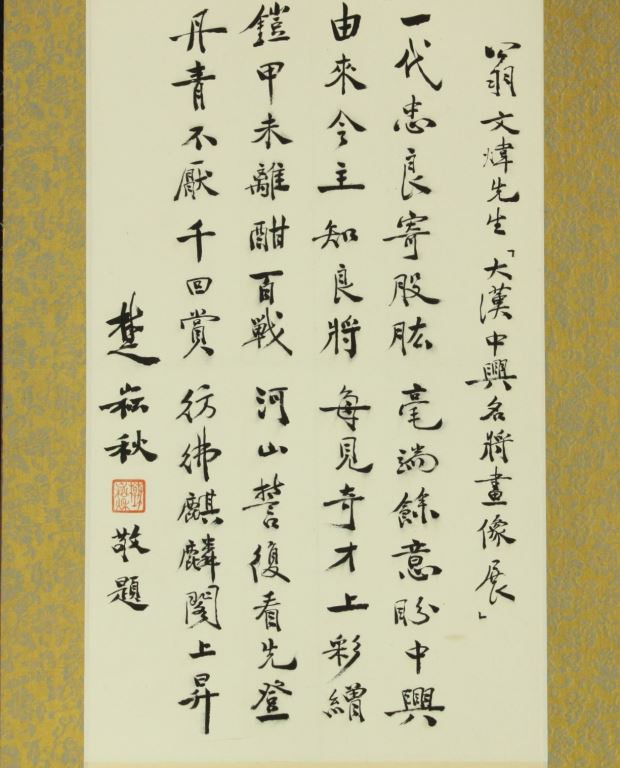 翁文煒先生「大漢中興名將畫像展」
一代忠良寄股肱 毫端餘意盼中興
由來令主知良將 每見奇才上彩繒
鎧甲未離酣百戰 河山誓復看先登
丹青不厭千回賞 彷彿麒麟閣上昇
楚崧秋 敬題